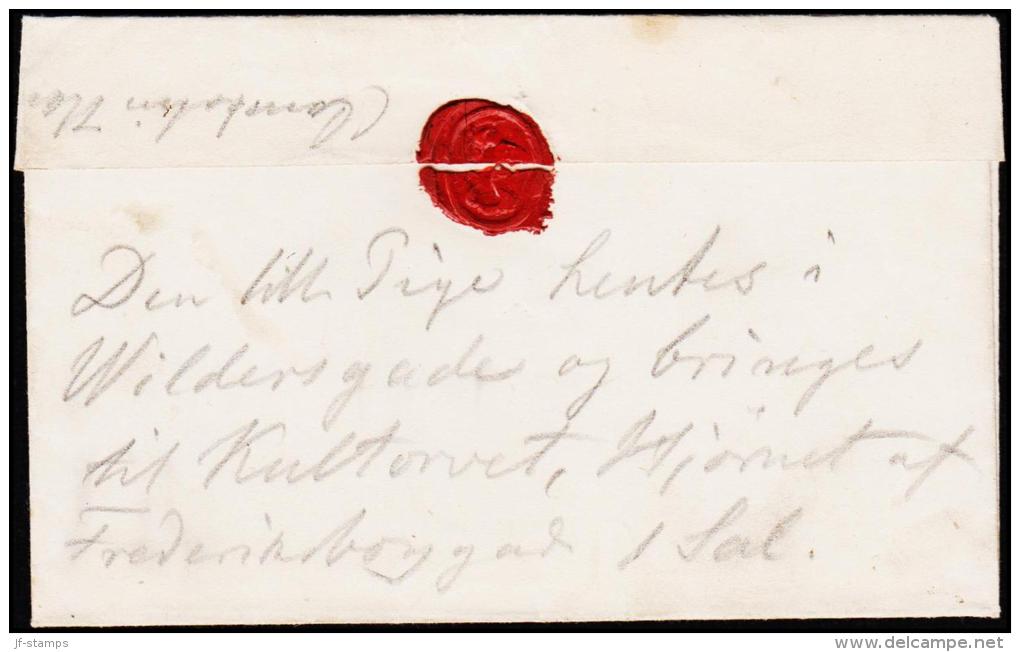 Den lill Pige hentes i
Wildersgade og bringes
til Kultorvet, Hjørnet af
Frederiksborggade 1 Sal.
jf-stamps
www.delcampe.net